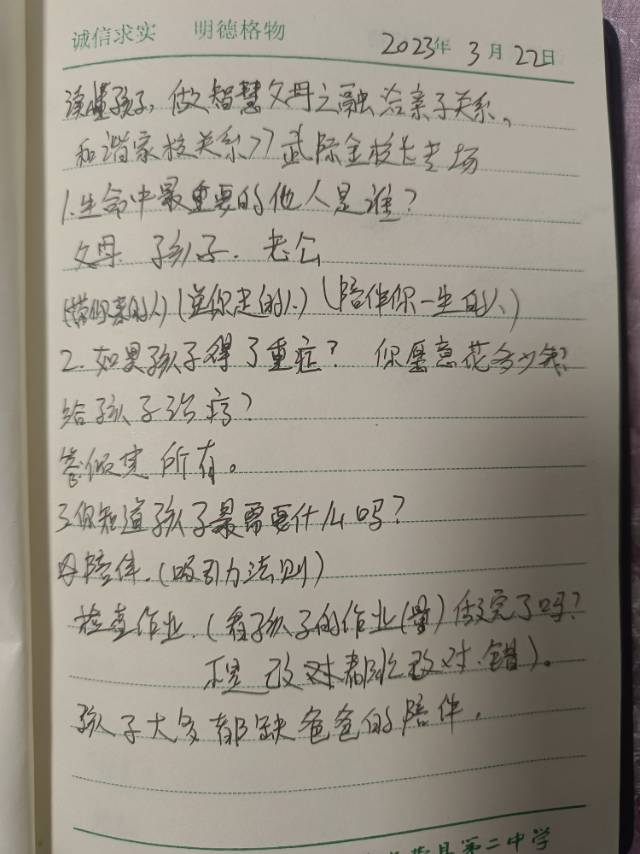 诚信求实 明德格物
2023年 3月 22日
读懂孩子,做智慧父母之融洽亲子关系,
和谐家校关系>>武际金校长专场
1.生命中最重要的他人是谁?
父母 孩子. 老公
(带你来的人)(送你走的人)(陪伴你一生的人)
2.如果孩子得了重症? 你愿意花多少钱?
给孩子治病?
答倾其所有。
3.你知道孩子最需要什么吗?
陪伴.(吸引力法则)
检查作业.(看孩子的作业(量)做完了吗?
不是改对都改对.错)。
孩子大多都缺爸爸的陪伴.
县第二中学